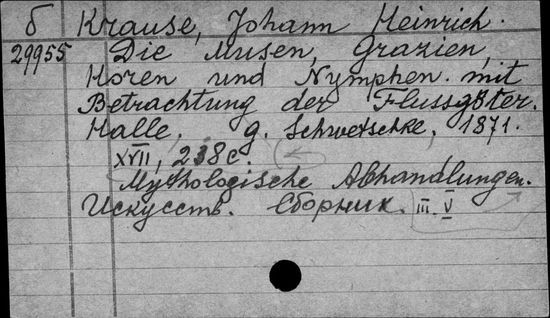 б Krause, Johann Heinrich.
29955 Die Musen, Grazien,
Horen und Nymphen mit
Betrachtung der Flussgötter.
Halle, G. Schwetschke, 1871.
XVII, 238 с.
Mythologische Abhandlungen.
Искусств. Сборник. III. V